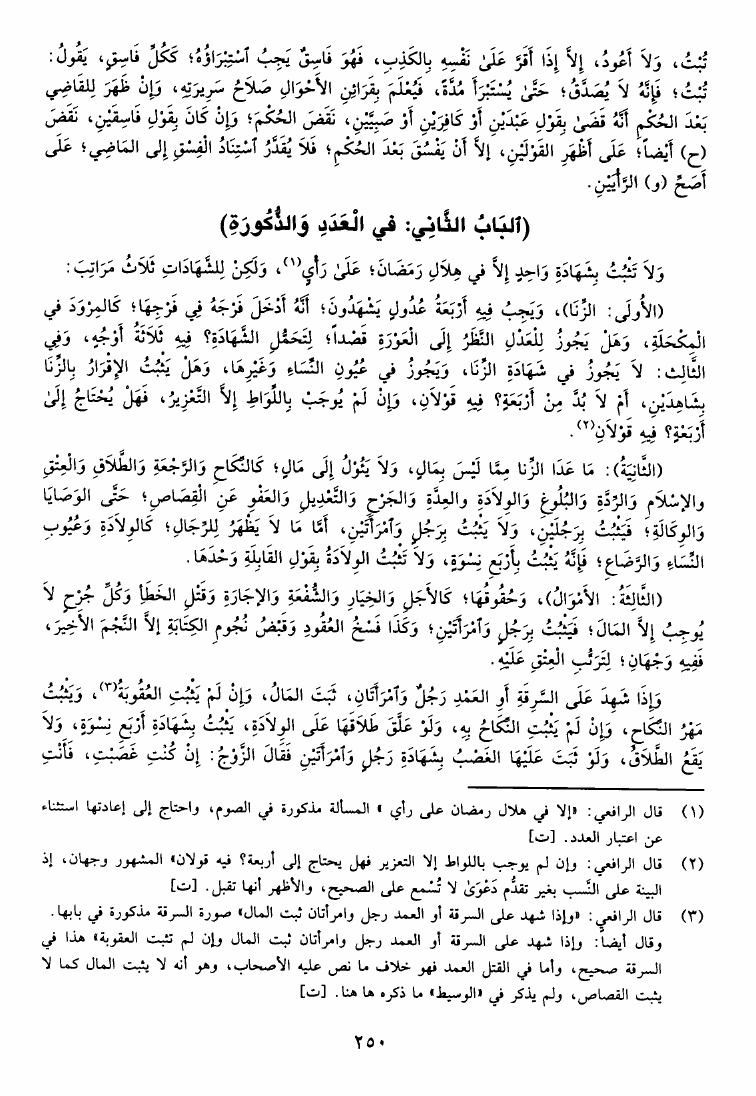 تُبْتُ، وَلاَ أَعُودُ، إِلاَّ إِذَا أَقَرَّ عَلَىٰ نَفْسِهِ بِالكَذِبِ، فَهُوَ فَاسِقٌ يَجِبُ ٱسْتِبْرَاؤُهُ؛ كَكُلِّ فَاسِقٍ، يَقُولُ:
تُبْتُ؛ فَإِنَّهُ لاَ يُصَدَّقُ؛ حَتَّىٰ يُسْتَبْرَأَ مُدَّةً، فَيُعْلَمَ بِقَرَائِنِ الأَحْوَالِ صَلاَحُ سَرِيرَتِهِ، وَإِنْ ظَهَرَ لِلقَاضِي
بَعْدَ الحُكْمِ أَنَّهُ قَضَىٰ بِقَوْلِ عَبْدَيْنِ أَوْ كَافِرَيْنِ أَوْ صَبِيَّيْنِ، نَقَضَ الحُكْمَ؛ وَإِنْ كَانَ بِقَوْلِ فَاسِقَيْنِ، نَقَضَ
(ح) أَيْضاً؛ عَلَى أَظْهَرِ القَوْلَيْنِ، إِلاَّ أَنْ يَفْسُقَ بَعْدَ الحُكْمِ؛ فَلاَ يُقَدَّرُ ٱسْتِنَادُ الْفِسْقِ إِلى المَاضِي؛ عَلَى
أَصَحِّ (و) الرَّأْيَيْنِ.
(ٱلبَابُ الثَّانِي: في الْعَدَدِ وَالذُّكُورَةِ)
وَلاَ تَثْبُتُ بِشَهَادَةِ وَاحِدٍ إِلاَّ في هِلاَلِ رَمَضَانَ؛ عَلَىٰ رَأْيٍ(١)، وَلَكِنْ لِلشَّهَادَاتِ ثَلاَثُ مَرَاتِبَ:
(الأُولَى: الزِّنَا)، وَيَجِبُ فِيهِ أَرْبَعَةُ عُدُولٍ يَشْهَدُونَ؛ أَنَّهُ أَدْخَلَ فَرْجَهُ فِي فَرْجِهَا؛ كَالمِرْوَدِ في
الْمِكْحَلَةِ، وَهَلْ يَجُوزُ لِلْعَدْلِ النَّظَرُ إِلَى الْعَوْرَةِ قَصْداً؛ لِتَحَمُّلِ الشَّهَادَةِ؟ فِيهِ ثَلاَثَةُ أَوْجُهٍ، وَفِي
الثَّالِثِ: لاَ يَجُوزُ في شَهَادَةِ الزِّنَا، وَيَجُوزُ في عُيُونِ النِّسَاءِ وَغَيْرِهَا، وَهَلْ يَثْبُتُ الإِقْرَارُ بِالزِّنَا
بِشَاهِدَيْنِ، أَمْ لاَ بُدَّ مِنْ أَرْبَعَةٍ؟ فِيهِ قَوْلاَنِ، وَإِنْ لَمْ يُوجَبْ بِاللِّوَاطِ إِلاَّ التَّعْزِيرُ، فَهَلْ يُحْتَاجُ إِلَىٰ
أَرْبَعَةٍ؟ فِيهِ قَوْلاَنِ(٢).
(الثَّانِيَةُ): مَا عَدَا الزِّنا مِمَّا لَيْسَ بِمَالٍ، وَلاَ يَئُولُ إِلَى مَالٍ؛ كَالنِّكَاحِ وَالرَّجْعَةِ وَالطَّلاَقِ وَالْعِتْقِ
والإِسْلاَمِ وَالرِّدَّةِ وَالبُلُوغِ وَالوِلاَدَةِ والعِدَّةِ وَالجَرْحِ وَالتَّعْدِيلِ وَالعَفْوِ عَنِ الْقِصَاصِ؛ حَتَّى الوَصَايَا
وَالوِكَالَةِ؛ فَيَثْبُتُ بِرَجُلَيْنِ، وَلاَ يَثْبُتُ بِرَجُلٍ وَٱمْرَأَتَيْنِ، أَمَّا مَا لاَ يَظْهَرُ لِلرِّجَالِ؛ كَالوِلاَدَةِ وَعُيُوبِ
النِّسَاءِ وَالرَّضَاعِ؛ فَإِنَّهُ يَثْبُتُ بِأَرْبَعِ نِسْوَةٍ، وَلاَ تَثْبُتُ الوِلاَدَةُ بِقَوْلِ القَابِلَةِ وَحْدَهَا.
(الثَّالِثَةُ: الأَمْوَالُ)، وَحُقُوقُهَا؛ كَالأَجَلِ وَالخِيَارِ وَالشُّفْعَةِ وَالإِجَارَةِ وَقَتْلِ الخَطَأِ وَكُلِّ جُرْحٍ لاَ
يُوجِبُ إِلاَّ المَالَ؛ فَيَثْبُتُ بِرَجُلٍ وَٱمْرَأَتَيْنِ؛ وَكَذَا فَسْخُ العُقُودِ وَقَبْضُ نُجُومِ الكِتَابَةِ إِلاَّ النَّجْمَ الأَخِيرَ،
فَفِيهِ وَجْهَانِ؛ لِتَرَتُّبِ الْعِتْقِ عَلَيْهِ.
وَإِذَا شَهِدَ عَلَى السَّرِقَةِ أَوِ العَمْدِ رَجُلٌ وَٱمْرَأَتَانِ، ثَبَتَ المَالُ، وَإِنْ لَمْ يَثْبُتِ العُقُوبَةُ(٣)، وَيَثْبُتُ
مَهْرُ النِّكَاحِ، وَإِنْ لَمْ يَثْبُتِ النِّكَاحُ بِهِ، وَلَوْ عَلَّقَ طَلاَقَهَا عَلَى الوِلاَدَةِ، يَثْبُتُ بِشَهَادَةِ أَرْبَعِ نِسْوَةٍ، وَلاَ
يَقَعُ الطَّلاَقُ، وَلَوْ ثَبَتَ عَلَيْهَا الغَصْبُ بِشَهَادَةِ رَجُلٍ وَٱمْرَأَتَيْنِ فَقَالَ الزَّوْجُ: إِنْ كُنْتِ غَصَبْتِ، فَأَنْتِ
(١) قال الرافعي: «إلا في هلال رمضان على رأي» المسألة مذكورة في الصوم، واحتاج إلى إعادتها استثناء
عن اعتبار العدد. [ت]
(٢) قال الرافعي: وإن لم يوجب باللواط إلا التعزير فهل يحتاج إلى أربعة؟ فيه قولان» المشهور وجهان، إذ
البينة على النَّسب بغير تقدُّم دَعْوَىٰ لا تُسْمع على الصحيح، والأظهر أنها تقبل. [ت]
(٣) قال الرافعي: «وإذا شهد على السرقة أو العمد رجل وامرأتان ثبت المال» صورة السرقة مذكورة في بابها.
وقال أيضاً: وإذا شهد على السرقة أو العمد رجل وامرأتان ثبت المال وإن لم تثبت العقوبة» هذا في
السرقة صحيح، وأما في القتل العمد فهو خلاف ما نص عليه الأصحاب، وهو أنه لا يثبت المال كما لا
يثبت القصاص، ولم يذكر في «الوسيط» ما ذكره ها هنا. [ت]
٢٥٠